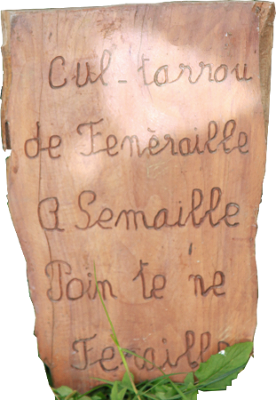 Cul-tarrou
de Fenèraille
A Semaille
Poin te ne
Feraille